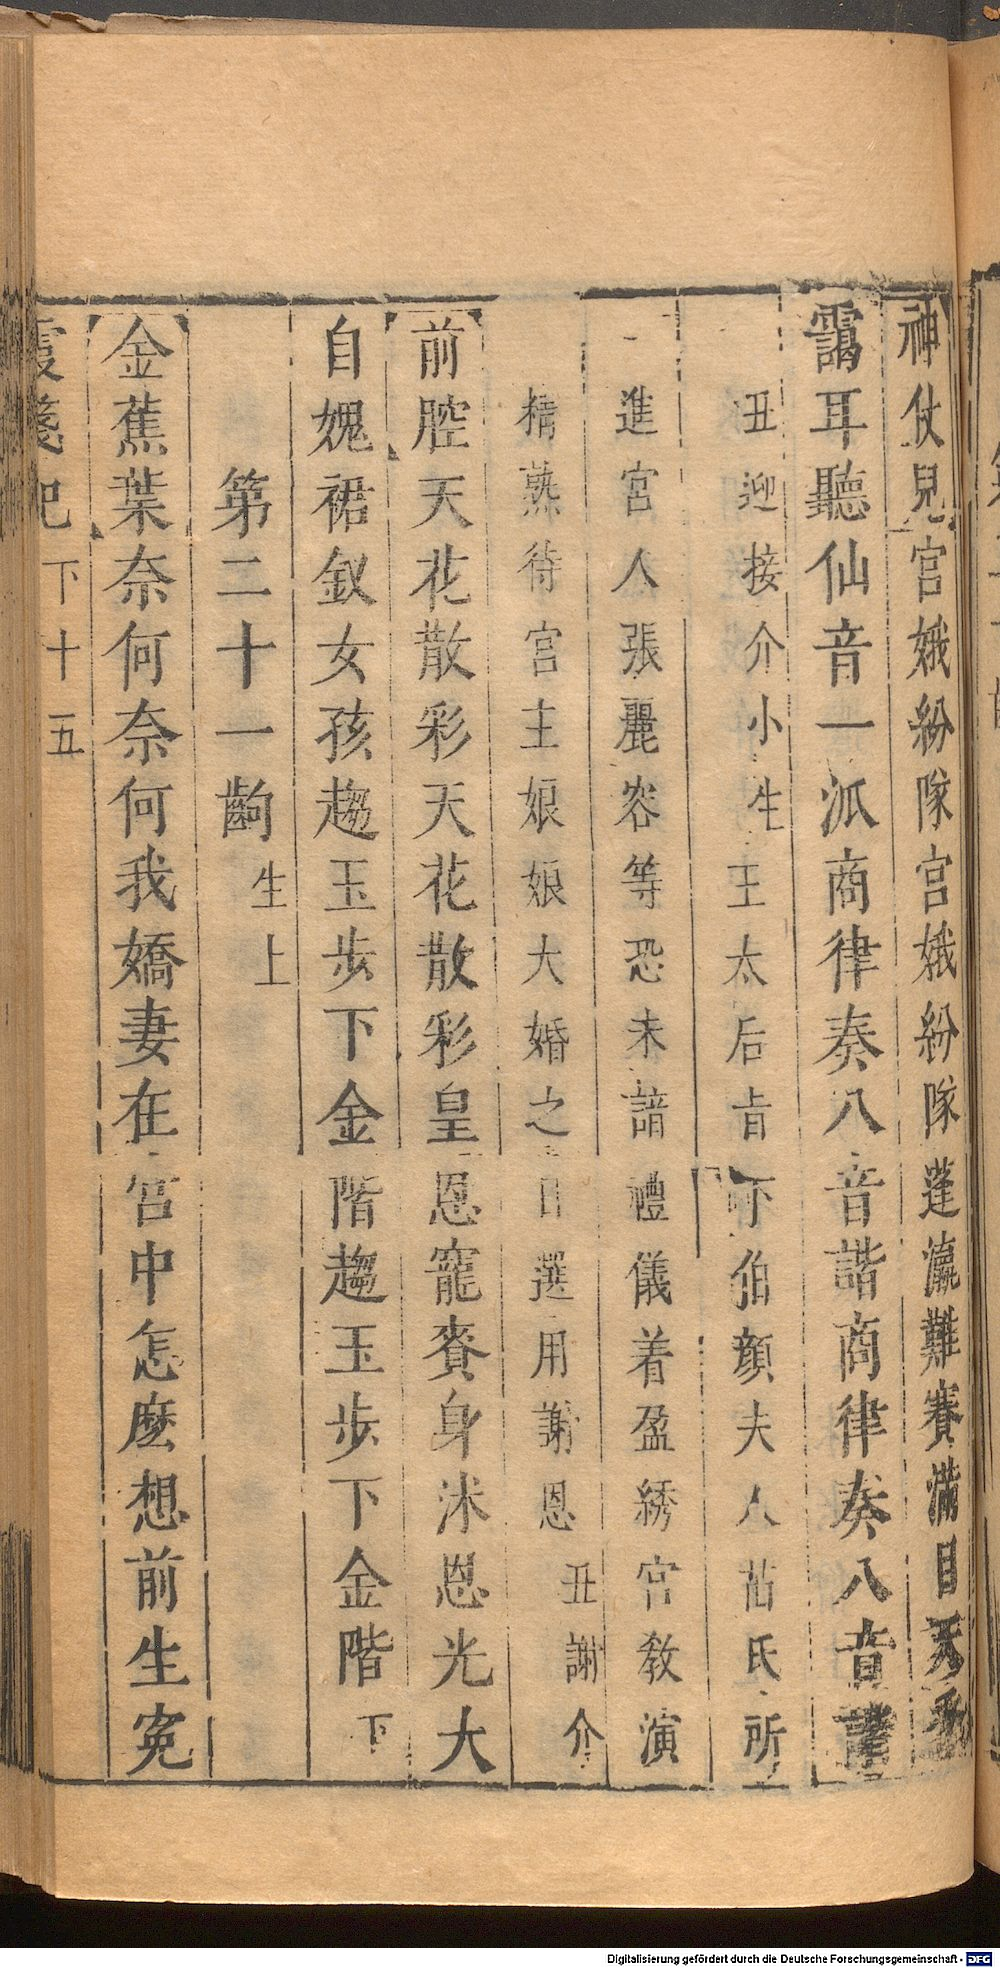 神仗兒宮娥紛隊宮娥紛隊蓬瀛難賽滿目天
靄耳聽仙音一派商律奏八音諧商律奏八音諧
丑迎接介小生王太后旨下伯顏夫人苫氏所
進宮人張麗容等恐未諳禮儀着盈綉宮教演
精熟待宮主娘娘大婚之日選用謝恩丑謝介
前腔天花散彩天花散彩皇恩寵賚身沐恩光大
自媿裙釵女孩趨玉步下金階趨玉步下金階下
第二十一齣生上
金蕉葉奈何奈何我嬌妻在宮中怎麽想前生冤
霞箋記下十五
Digitalisierung gefördert durch die Deutsche Forschungsgemeinschaft - DFG